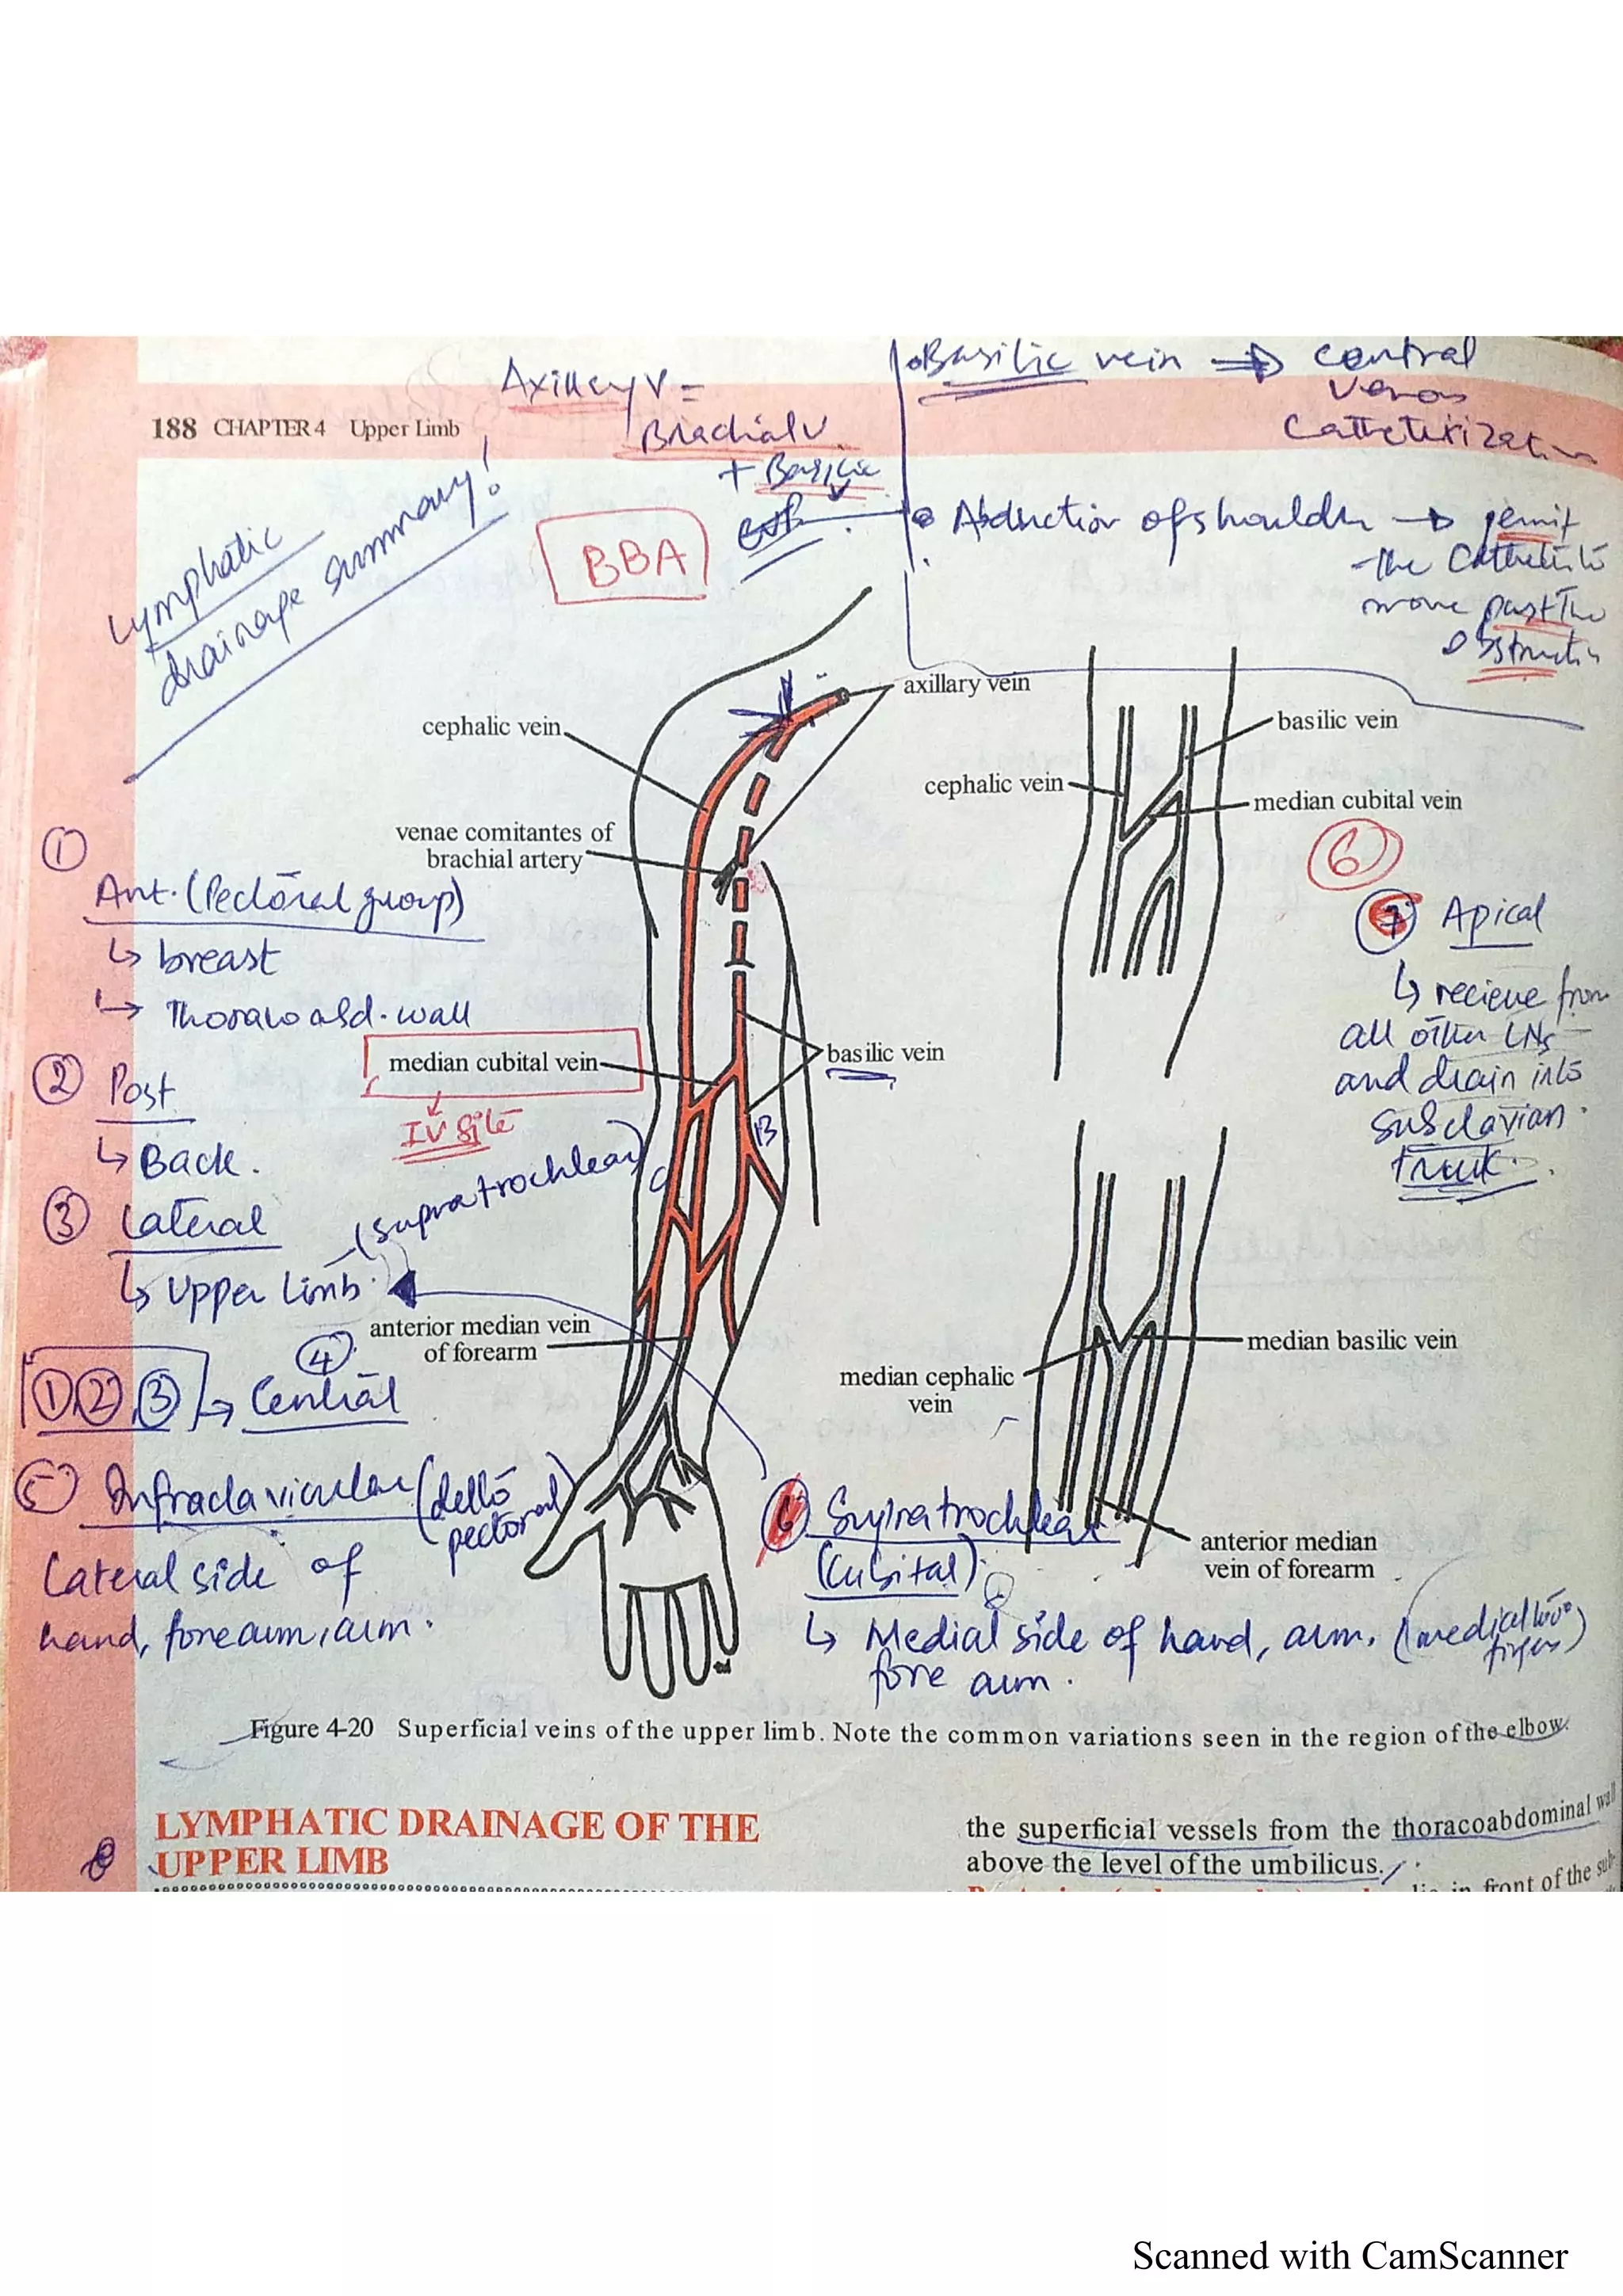 Axillary V =
Brachial V
+ Basilic
V
BBA
• Basilic vein ⇒ central
Venous
Catheterization
188 CHAPTER 4 Upper Limb
• Abduction of shoulder → permit
the Catheter to
move past the
obstruction
Lymphatic
drainage summary!
axillary vein
cephalic vein
venae comitantes of
brachial artery
median cubital vein
IV Site
basilic vein
B
C
anterior median vein
of forearm
basilic vein
cephalic vein
median cubital vein
median basilic vein
median cephalic
vein
anterior median
vein of forearm
①
Ant. (Pectoral group)
↳ breast
↳ Thoraco abd. wall
② Post
↳ Back.
③ Lateral
↳ Upper Limb. (supratrochlear)
①,②,③ → Central ④
⑤ Infraclavicular (delto
pectoral)
Lateral side of
hand, forearm, arm.
⑥ Supratrochlear
(Cubital)
↳ Medial side of hand, arm, (medial two
fingers)
fore arm.
⑥
⑦ Apical
↳ recieve from
all other LNs
and drain into
subclavian
trunk.
Figure 4-20 Superficial veins of the upper limb. Note the common variations seen in the region of the elbow.
LYMPHATIC DRAINAGE OF THE
UPPER LIMB
the superficial vessels from the thoracoabdominal wall
above the level of the umbilicus.
in front of the sub-
Scanned with CamScanner